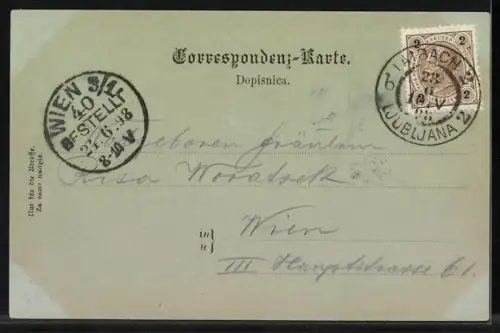 Correspondenz-Karte.
Dopisnica.
2 2
2 2
LAIBACH
LJUBLJANA 2
WIEN 3/1
40
BESTELLT
27.6.98
8-10 V
geboren Fräulein
Risa Woratsek
in
u
Wien
III Hauptstrasse 61.
Nur für die Adresse.
Za samo napis.